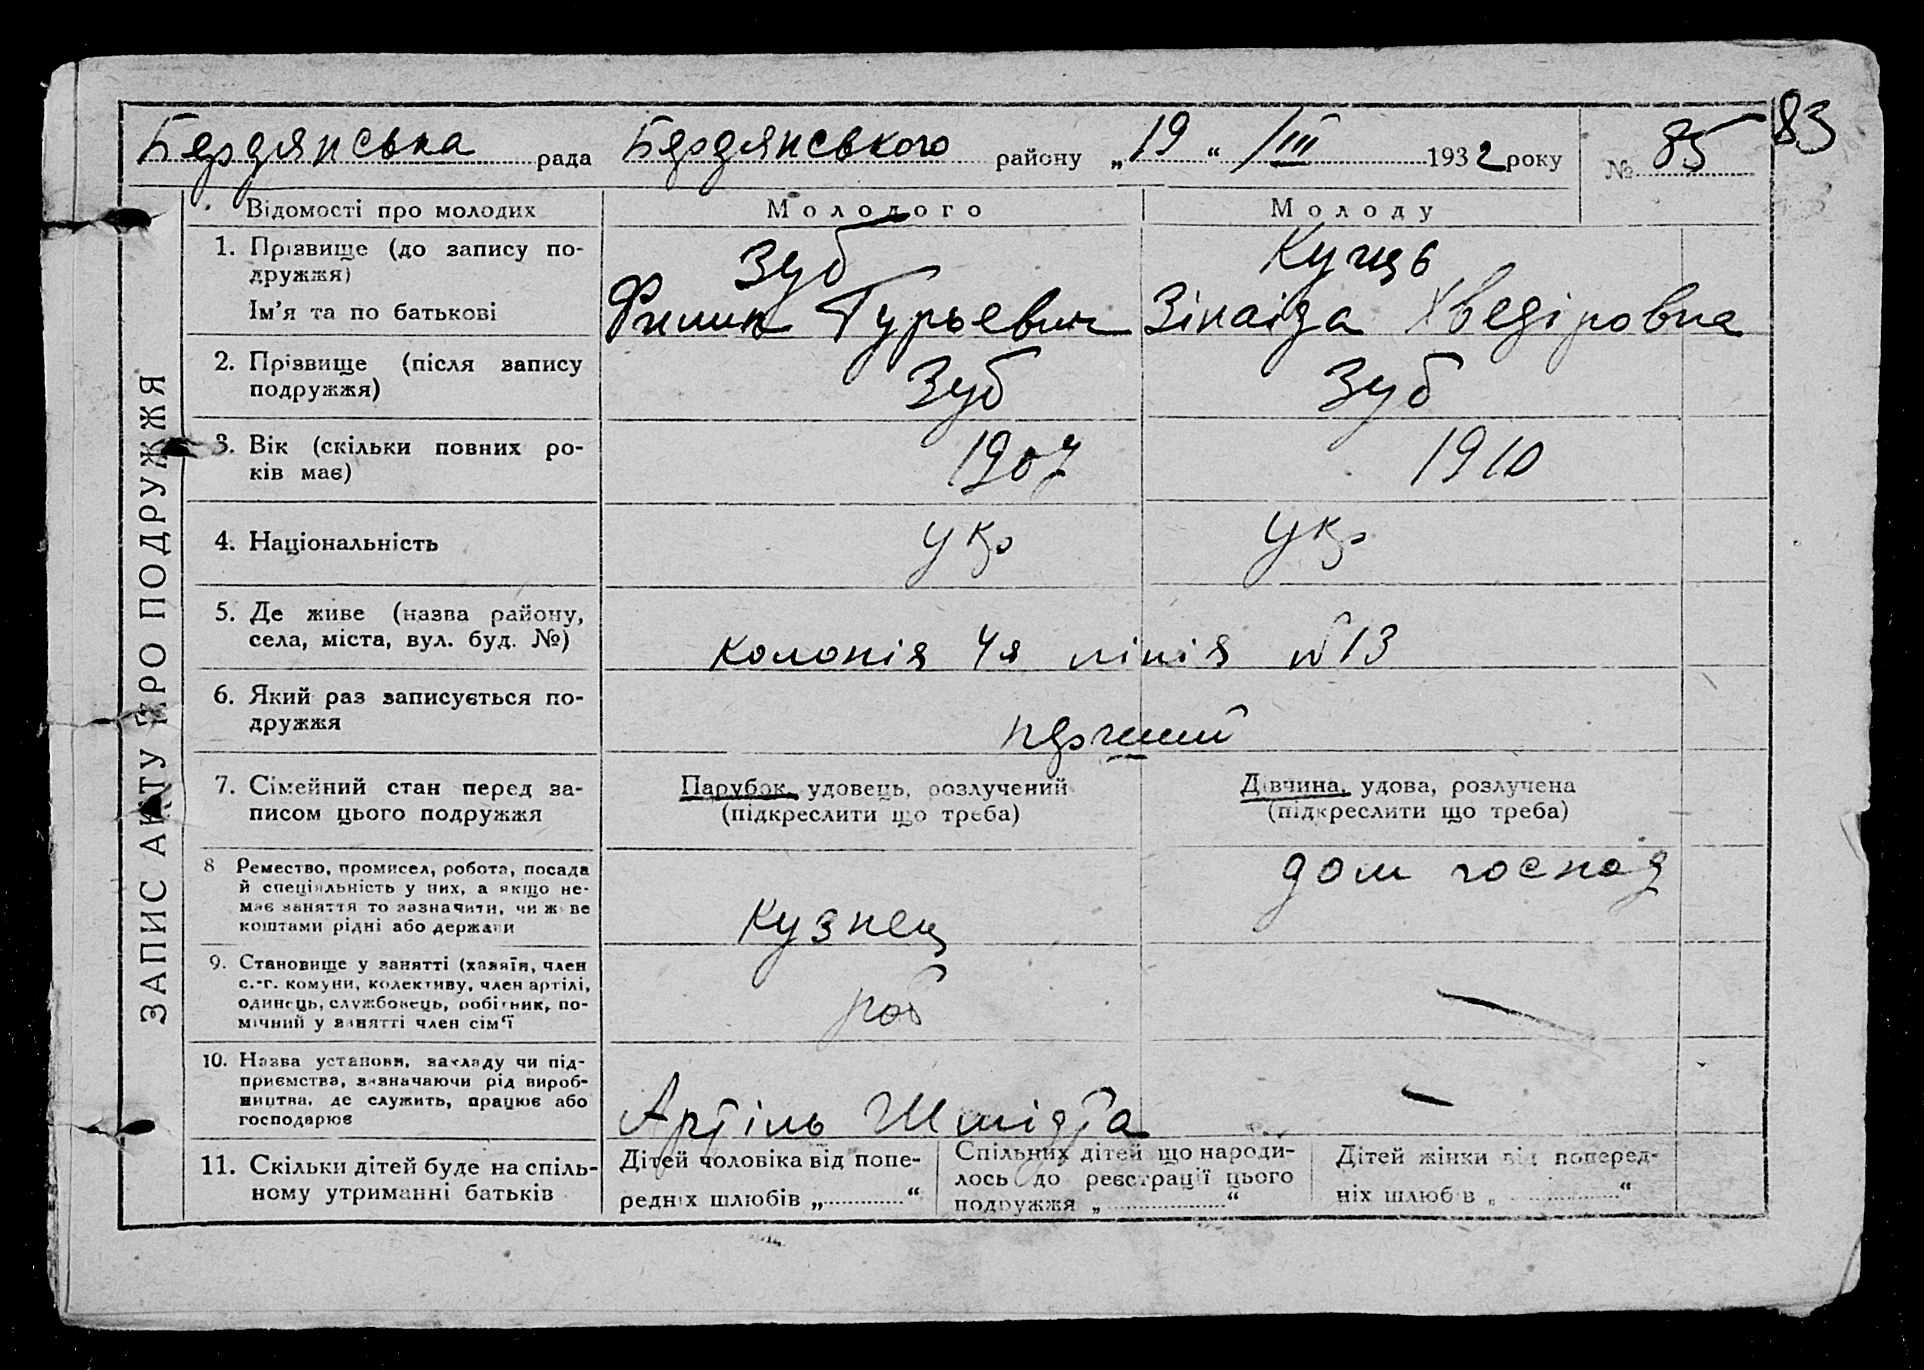 83
Бердянська рада Бердянського району „19“ /III 1932 року № 85
ЗАПИС АКТУ ПРО ПОДРУЖЖЯ
Відомості про молодих Молодого Молоду
1. Прізвище (до запису по-
дружжя)
Зуб
Ім'я та по батькові
Филип Гурьевич Зінаіда Хведіровна
2. Прізвище (після запису
подружжя)
Зуб Зуб
3. Вік (скільки повних ро-
ків має)
1907 1910
4. Національність
укр укр
5. Де живе (назва району,
села, міста, вул. буд. №)
колонія 4я лінія № 13
6. Який раз записується по-
дружжя
перший
7. Сімейний стан перед за-
писом цього подружжя
Парубок, удовець, розлучений
(підкреслити що треба)
Дівчина, удова, розлучена
(підкреслити що треба)
8 Ремество, промисел, робота, посада
й спеціяльність у них, а якщо не-
має заняття то зазначити, чи живе
коштами рідні або держави
кузнец
дом господ
9. Становище у занятті (хазяїн, член
с.-г. комуни, колективу, член артілі,
одинець, службовець, робітник, по-
мічний у занятті член сім'ї
роб —
10. Назва установи, закладу чи під-
приємства, зазначаючи рід вироб-
ництва, де служить, працює або
господарює
Артіль Шмідта —
11. Скільки дітей буде на спіль-
ному утриманні батьків
Дітей чоловіка від попе-
редніх шлюбів „ “
Спільних дітей що народи-
лось до реєстрації цього
подружжя „ “
Дітей жінки від поперед-
ніх шлюбів „ “